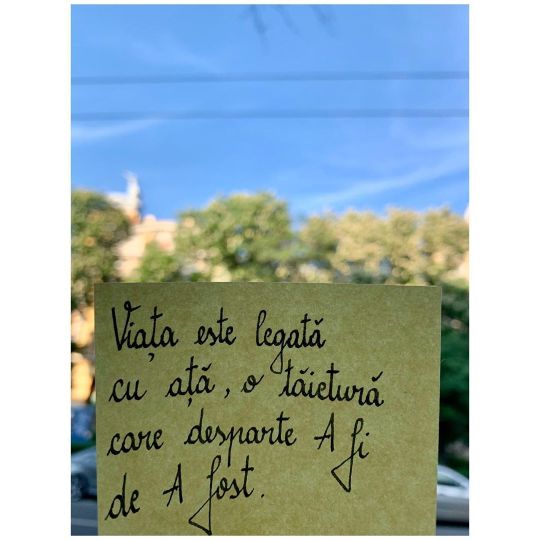 Viața este legată
cu ață, o tăietură
care desparte A fi
de A fost.